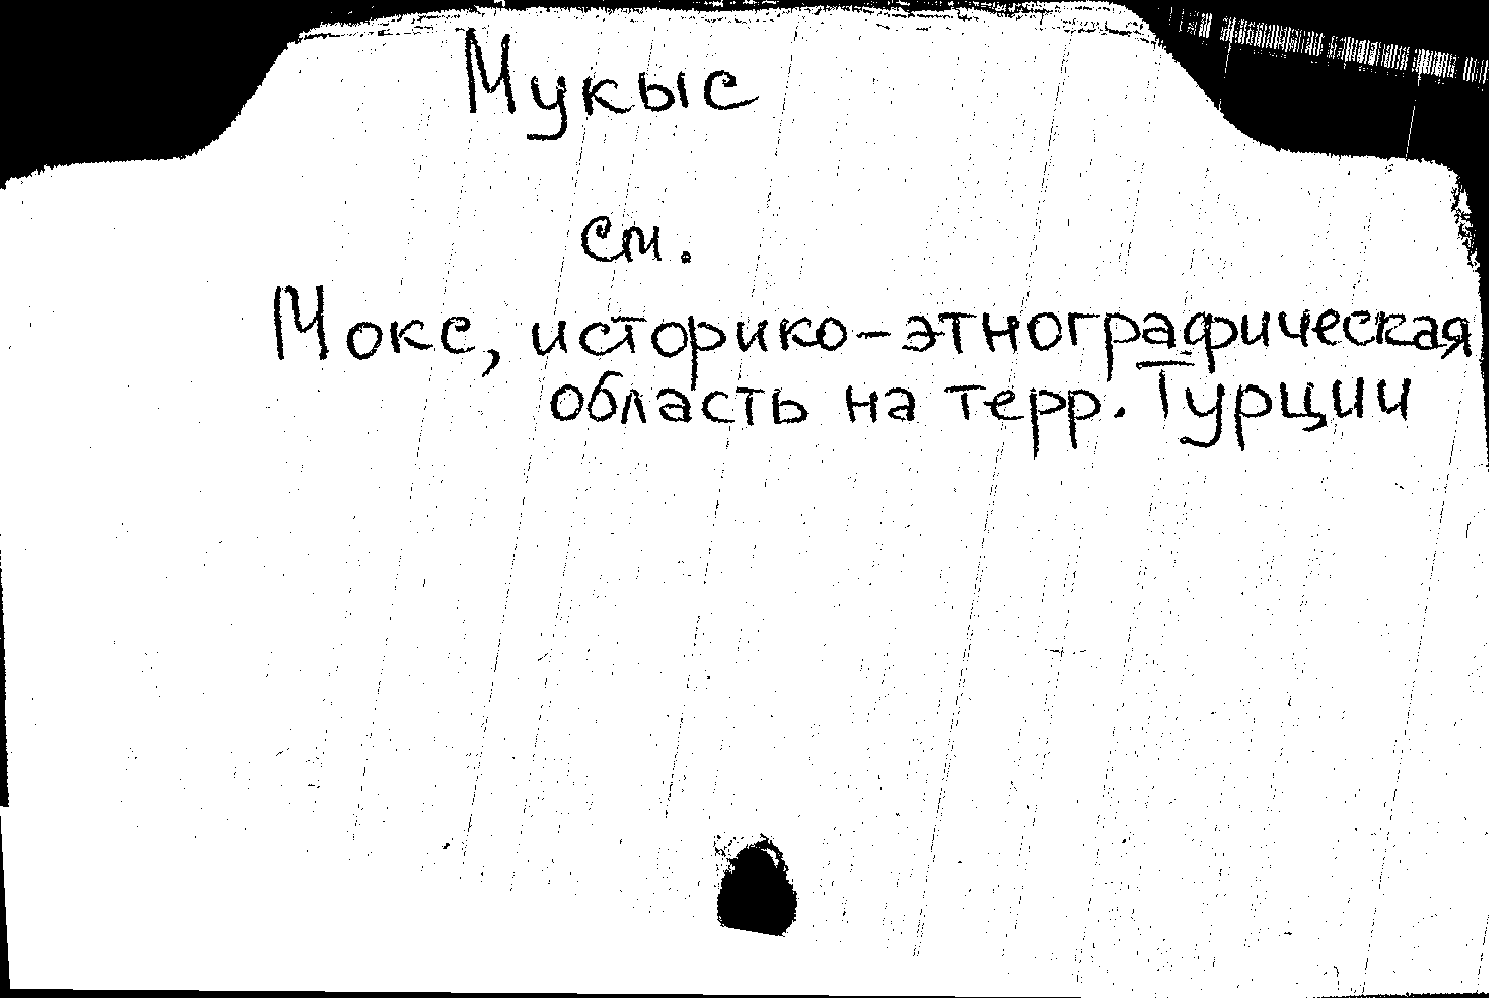 Мукыс
см.
Мокс, историко-этнографическая
область на терр. Турции